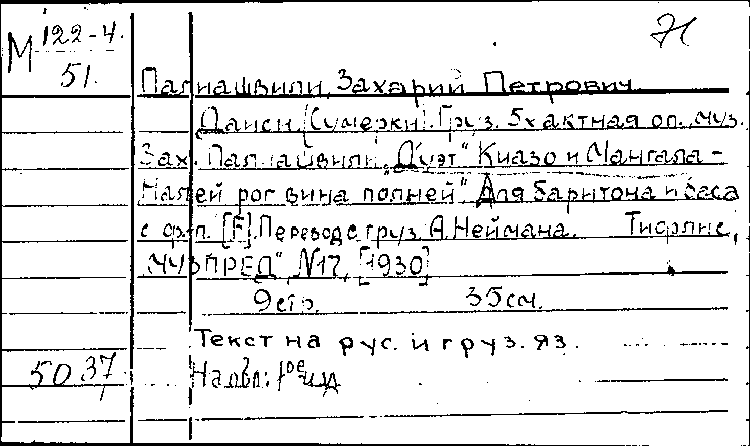 М 122-4
51.
71
Палиашвили, Захарий Петрович
Даиси. (Сумерки). Груз. 5х актная оп., муз.
Зах. Палиашвили. „Дуэт" Киазо и Мангала -
Налей рог вина полней". Для баритона и баса
с ф-п. [F]. Перевод с груз. А. Неймана. Тифлис,
„МУЗПРЕД", N17, [1930]
9 стр. 35 см.
Текст на рус. и груз. яз.
5037
На обл: 1ое изд